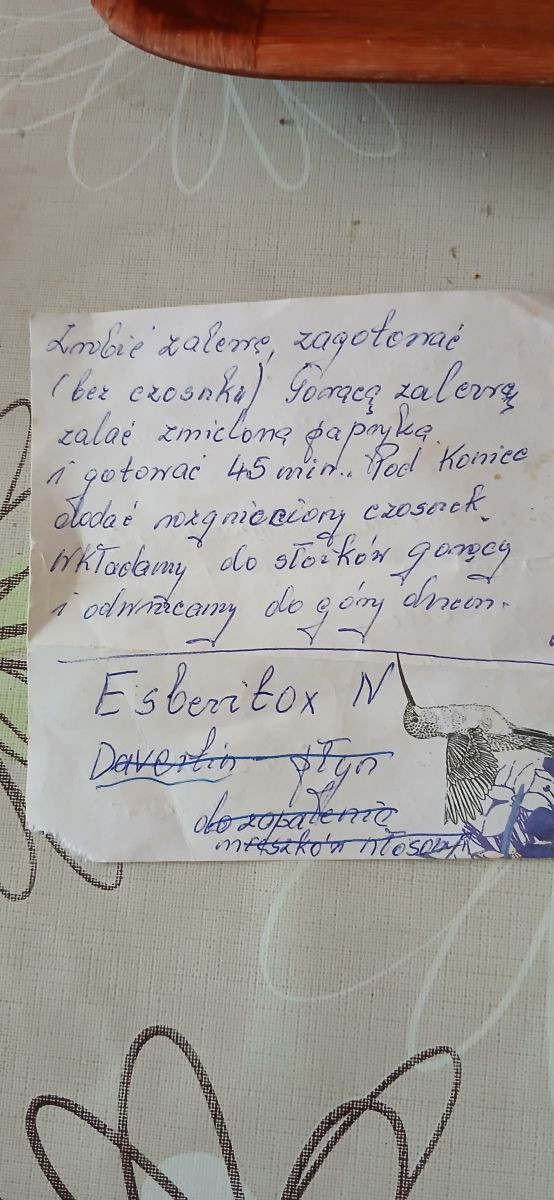 Zrobić zalewę, zagotować
(bez czosnku) Gorącą zalewą
zalać zmieloną paprykę
i gotować 45 min.. Pod Koniec
dodać rozgnieciony czosnek
wkładamy do słoików gorący
i odwracamy do góry dnem.
Esberitox N
Davertin płyn
do zapalenia
mieszków włosowych